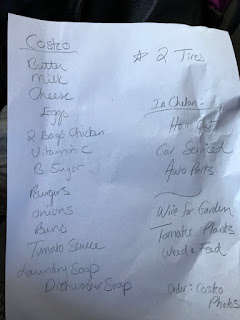 Costco
Butter
Milk
Cheese
Eggs
2 Bags Chicken
Vitamin C
B Sugar
Burgers
onions
Buns
Tomato Sauce
Laundry Soap
Dishwasher Soap
☆ 2 Tires
In Chelan:
Hair Cut
Car Serviced
Auto Parts
Wire for Garden
Tomatoe Plants
Weed + Feed
Order: Costco
Photos